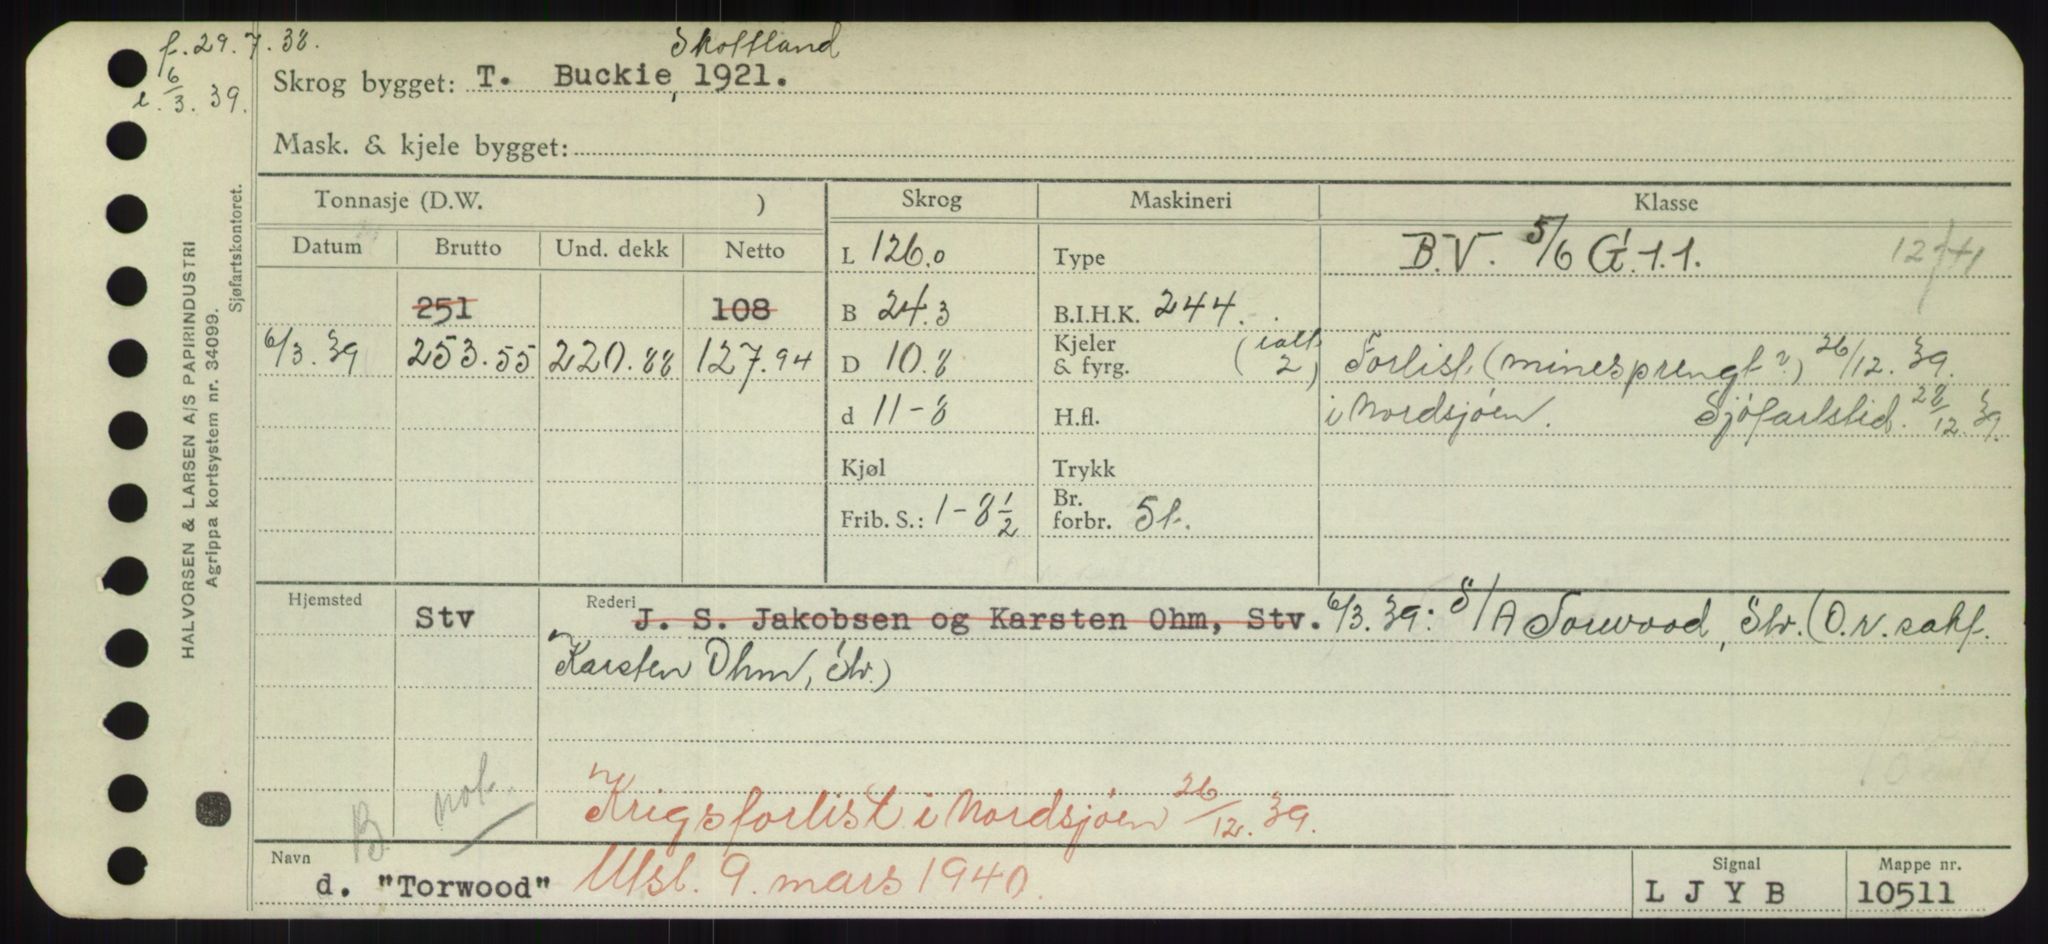 f. 29.7.38.
Skottland
Skrog bygget: T. Buckie, 1921.
6/3. 39.
Mask. & kjele bygget:
Tonnasje (D.W. )
Skrog
Maskineri
Klasse
Datum
Brutto
Und. dekk
Netto
L 126.0
Type
B.V. 5/6 G.1.1.
251
108
B 24.3
B.I.H.K. 244.
6/3.39
253.55
220.88
127.94
D 10.8
Kjeler & fyrg. (ialt 2)
Forlist (minesprengt?) 26/12. 39.
d 11-8
H.fl.
i Nordsjøen. Sjøfartstid. 28/12. 39.
Kjøl
Trykk
Frib. S.: 1-8 1/2
Br. forbr. 5 t.
Hjemsted
Stv
Rederi
J. S. Jakobsen og Karsten Ohm, Stv. 6/3.39: S/A Torwood, Stv. (O.N. sokf.
Karsten Ohm, Stv.)
B not.
Krigsforlist i Nordsjøen 26/12. 39.
Navn
d. "Torwood"
Utsl. 9. mars 1940.
Signal
L J Y B
Mappe nr.
10511
HALVORSEN & LARSEN A/S PAPIRINDUSTRI
Agrippa kortsystem nr. 34099.
Sjøfartskontoret.